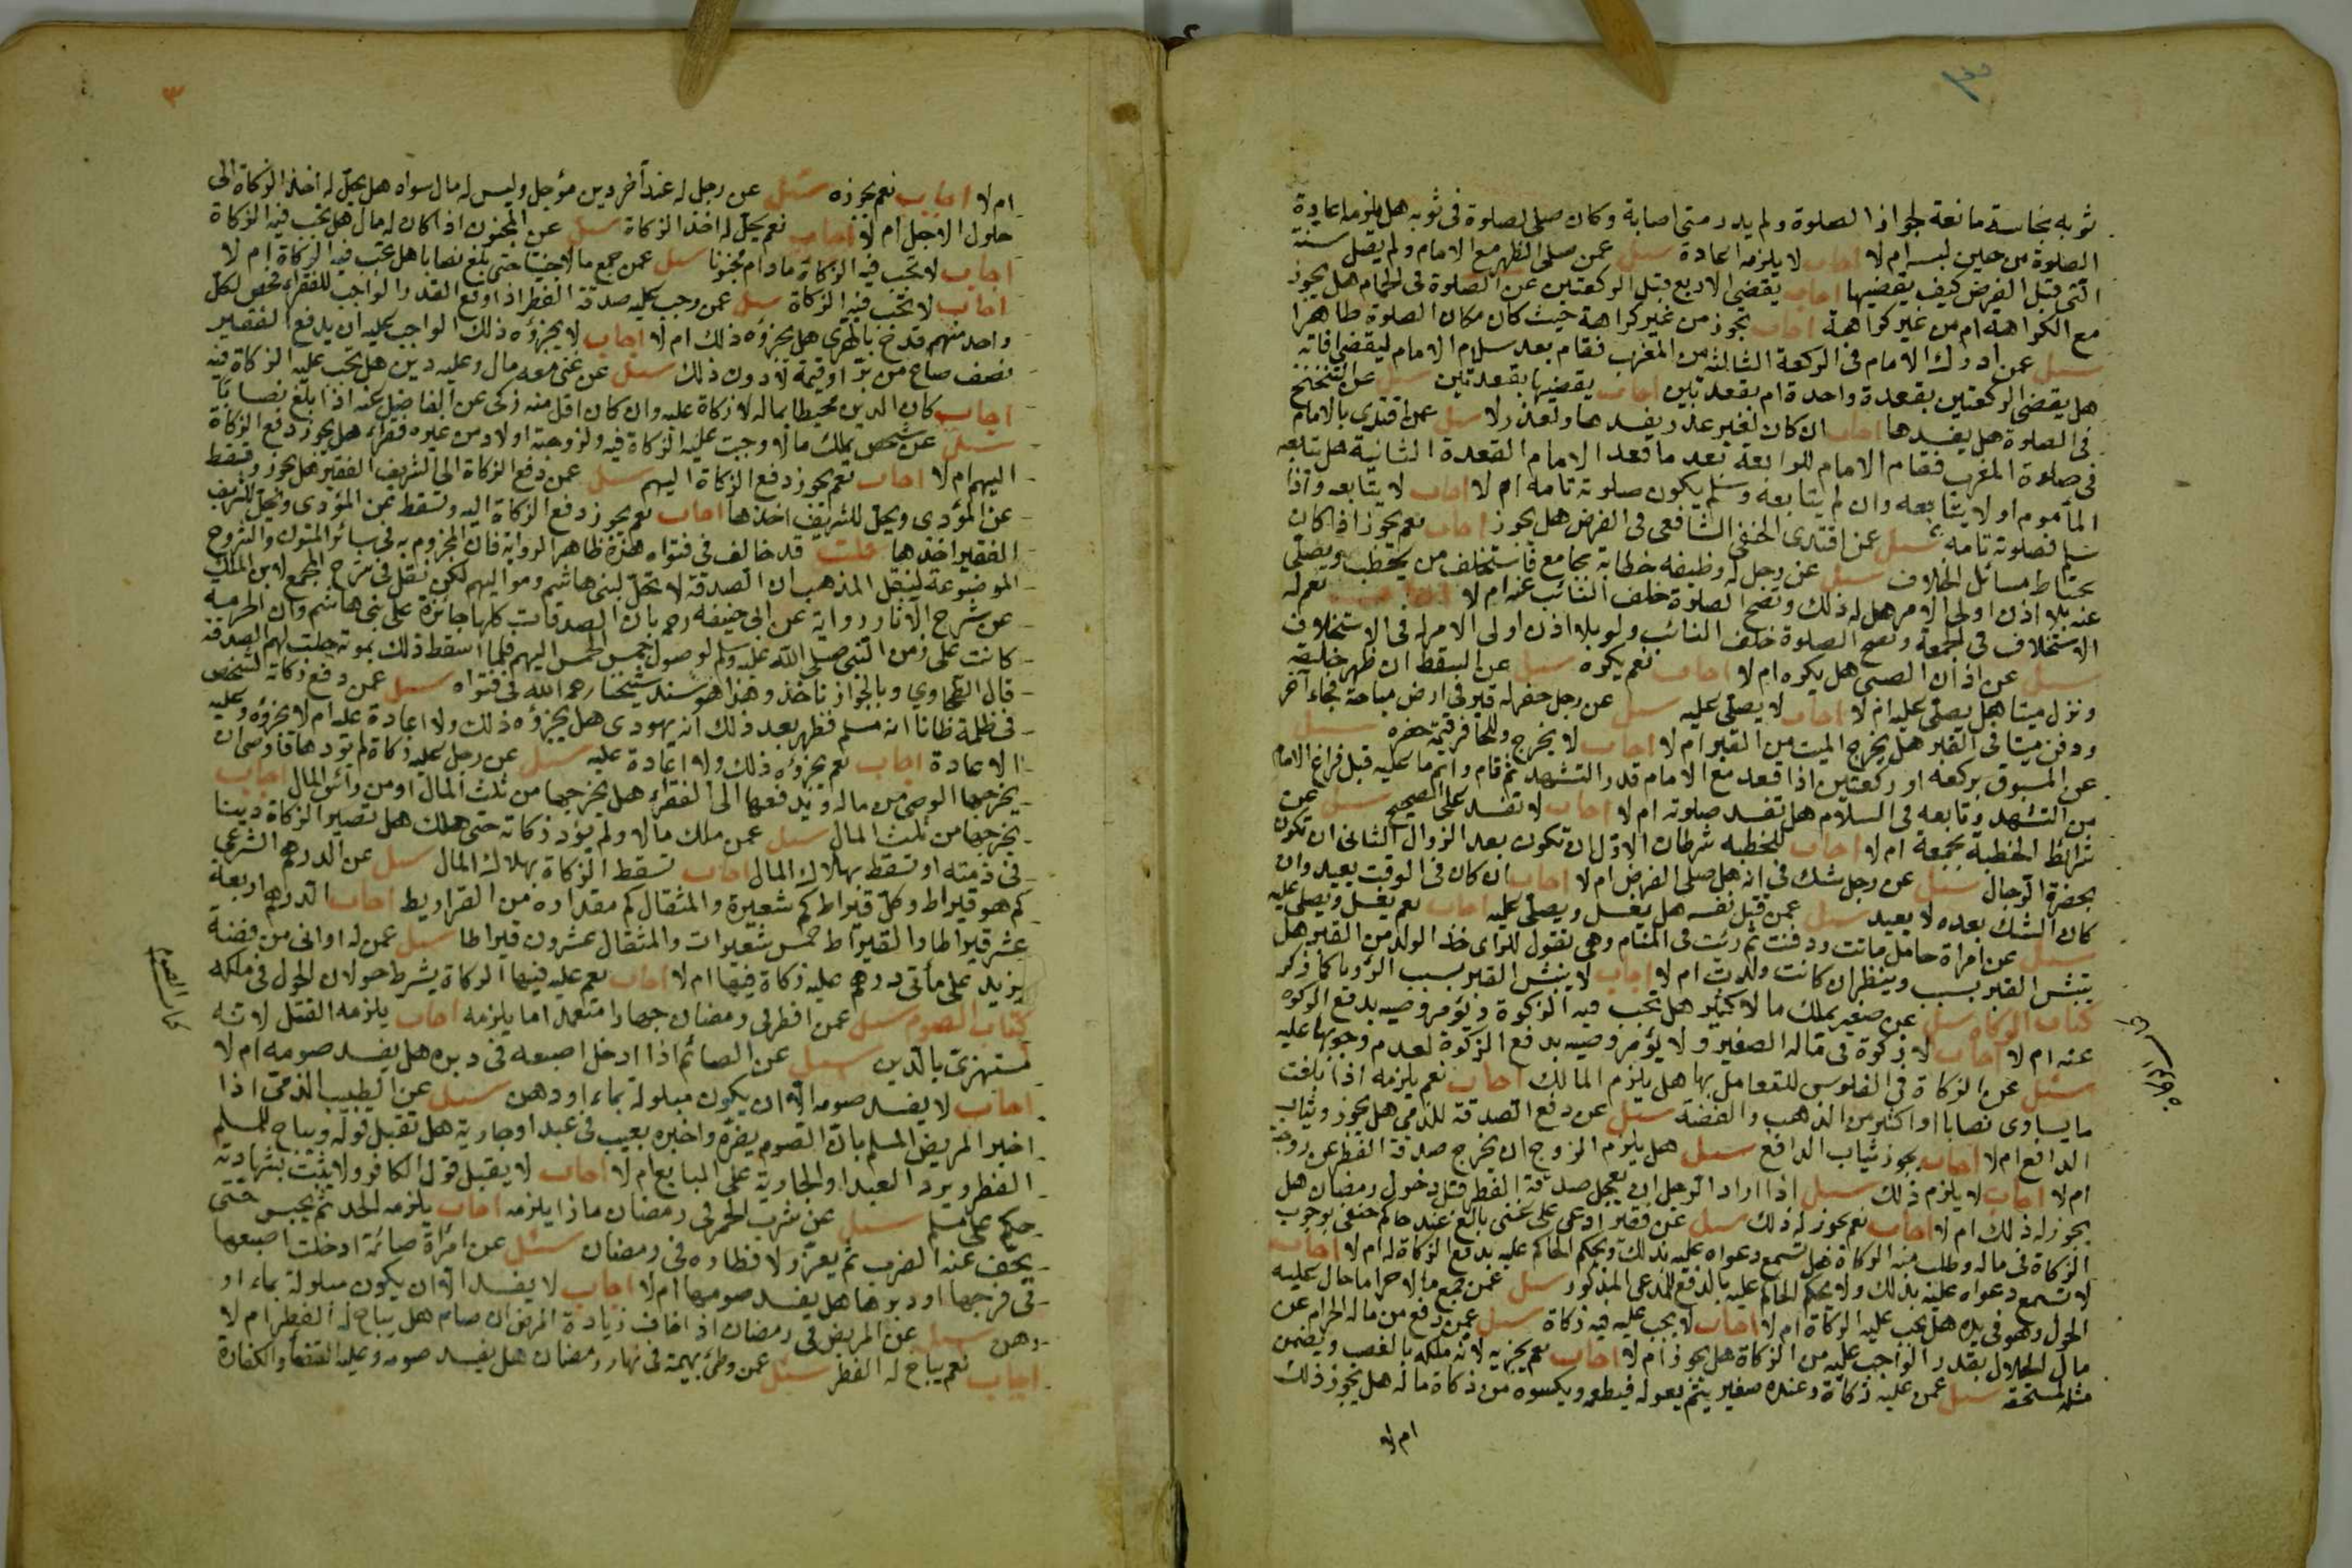 ثوبه نجاسة مانعة لجواز الصلوة ولم يدر متى اصابة وكان صلى لصلوة فى ثوبه هل يلزمه اعادة
الصلوة من حين لبسه ام لا اجاب لا يلزمه اعادة سئل عمن صلى الظهر مع الامام ولم يصل سنة
التى قبل الفرض كيف يقضيها اجاب يقضى الاربع قبل الركعتين عن الصلوة فى الحمام هل يجوز
مع الكراهة ام من غير كراهة اجاب يجوز من غير كراهة حيث كان مكان الصلوة طاهرا
سئل عمن ادرك الامام فى الركعة الثالثة من المغرب فقام بعد سلام الامام ليقضى ما فاته
هل يقضى الركعتين بقعدة واحدة ام بقعدتين اجاب يقضيها بقعدتين سئل عن التنحنح
فى الصلوة هل يفسدها اجاب ان كان لغير عذر يفسدها ولعذر لا سئل عمن اقتدى بالامام
فى صلوة المغرب فقام الامام للرابعة بعد ما قعد الامام القعدة الثانية هل يتابعه
المأموم او لا يتابعه وان لم يتابعه وسلم يكون صلوته تامة ام لا اجاب لا يتابعه واذا
سلم فصلوته تامة سئل عن اقتدى الحنفى الشافعى فى الفرض هل يجوز اجاب نعم يجوز اذا كان
يحتاط مسائل الخلاف سئل عن رجل له وظيفه خطابة بجامع فاستخلف من يخطب ويصلى
عنه بلا اذن اولى الامر هل له ذلك وتصح الصلوة خلف النائب عنه ام لا نعم له
الاستخلاف فى الجمعة وتصح الصلوة خلف النائب ولو بلا اذن اولى الامر له فى الاستخلاف
سئل عن اذان الصبى هل يكره ام لا اجاب نعم يكره سئل عن السقط ان ظهر خليقته
ونزل ميتا هل يصلى عليه ام لا اجاب لا يصلى عليه سئل عن رجل حفر له قبر فى ارض مباحة فجاء آخر
ودفن ميتا فى القبر هل يخرج الميت من القبر ام لا اجاب لا يخرج وللحافر قيمة حفره سئل
عن المسبوق بركعه او ركعتين اذا قعد مع الامام قدر التشهد ثم قام واتم ما عليه قبل فراغ الامام
من التشهد وتابعه فى السلام هل تفسد صلوته ام لا اجاب لا تفسد على الصحيح سئل عن
شرائط الخطبة بجمعة ام لا اجاب للخطبه شرطان الاول ان تكون بعد الزوال الثانى ان تكون
بحضرة الرجال سئل عن رجل شك فى انه هل صلى الفرض ام لا اجاب ان كان فى الوقت يعيد وان
كان الشك بعده لا يعيد سئل عمن قتل نفسه هل يغسل ويصلى عليه اجاب نعم يغسل ويصلى عليه
سئل عن امراة حامل ماتت ودفنت ثم رئت فى المنام وهى تقول للراى خذ الولد من القبر هل
ينبش القبر بسبب وينظر ان كانت ولدت ام لا اجاب لا ينبش القبر بسبب الرؤيا كما ذكر
كتاب الزكاة سئل عن صغير يملك مالا كثيرا هل تجب فيه الزكوة ويؤمر وصيه بدفع الزكوه
عنه ام لا اجاب لا زكوة فى ماله الصغير ولا يؤمر وصيه بدفع الزكوة لعدم وجوبها عليه
سئل عن الزكاة فى الفلوس للتعامل بها هل يلزم المالك اجاب نعم يلزمه اذا بلغت
ما يساوى نصابا او اكثر من الذهب والفضة سئل عن دفع الصدقة للذمى هل يجوز ويثاب
الدافع ام لا اجاب يجوز يثاب الدافع سئل هل يلزم الزوج ان يخرج صدقة الفطر عن زوجته
ام لا اجاب لا يلزم ذلك سئل اذا اراد الرجل ان يعجل صدقة الفطر قبل دخول رمضان هل
يجوز له ذلك ام لا اجاب نعم يجوز له ذلك سئل عن فقير ادعى على غنى بالغ عند حاكم حنفى بوجوب
الزكاة فى ماله وطلب منه الزكاة هل تسمع دعواه عليه بذلك ويحكم الحاكم عليه بدفع الزكاة له ام لا اجاب
لا تسمع دعواه عليه بذلك ولا يحكم الحاكم عليه بالدفع للمدعى المذكور سئل عمن جمع مالا حراما حال عليه
الحول وهو فى يده هل يجب عليه الزكاة ام لا اجاب لا يجب عليه فيه زكاة سئل عمن دفع من ماله الحرام عن
مال الحلال بقدر الواجب عليه من الزكاة هل يجوز ام لا اجاب نعم يجزيه لانه ملكه بالغصب ويضمن
مثله لمستحقه سئل عمن عليه زكاة وعنده صغير يتيم يعوله فيطعمه ويكسوه من زكاة ماله هل يجوز ذلك
ام لا
٣
ام لا اجاب نعم يجوزه سئل عن رجل له عند آخر دين مؤجل وليس له مال سواه هل يحل له اخذ الزكاة الى
حلول الاجل ام لا اجاب نعم يحل له اخذ الزكاة سئل عن المجنون اذا كان له مال هل تجب فيه الزكاة
اجاب لا تجب فيه الزكاة مادام مجنونا سئل عمن جمع مالا خبيثا حتى بلغ نصابا هل تجب فيه الزكاة ام لا
اجاب لا تجب فيه الزكاة سئل عمن وجب عليه صدقة الفطر اذا اوقع القدر الواجب للفقراء فخص لكل
واحد منهم قدح بالمصرى هل يجزؤه ذلك ام لا اجاب لا يجزؤه ذلك الواجب عليه ان يدفع الفقير
نصف صاع من بر او قيمة لا دون ذلك سئل عن غنى معه مال وعليه دين هل تجب عليه الزكاة فيه
اجاب كان الدين محيطا بماله لا زكاة عليه وان كان اقل منه زكى عن الفاضل عنه اذا بلغ نصابا
سئل عن شخص يملك مالا وجبت عليه الزكاة فيه ولزوجته اولاد من غيره فقراء هل يجوز دفع الزكاة
اليهم ام لا اجاب نعم يجوز دفع الزكاة اليهم سئل عمن دفع الزكاة الى الشريف الفقير هل يجوز وتسقط
عن المؤدى ويحل للشريف اخذها اجاب نعم يجوز دفع الزكاة اليه وتسقط عن المؤدى ويحل للشريف
الفقير اخذها قلت قد خالف فى فتواه هذه ظاهر الرواية فان المجزوم به فى سائر المتون والشروح
الموضوعة لنقل المذهب ان الصدقة لا تحل لبنى هاشم ومواليهم لكن نقل فى شرح المجمع لابن الملك
عن شرح الاثار رواية عن ابى حنيفه رحمه بان الصدقات كلها جائزة على بنى هاشم وان الحرمة
كانت على زمن النبى صلى الله عليه وسلم لوصول خمس الخمس اليهم فلما اسقط ذلك بموته حلت لهم الصدقة
قال الطحاوي وبالجواز ناخذ وهذا هو سند شيخنا رحمه الله فى فتواه سئل عمن دفع زكاته لشخص
فى ظلمة ظانا انه مسلم فظهر بعد ذلك انه يهودى هل يجزؤه ذلك ولا اعادة عليه ام لا يجزؤه وعليه
الاعادة اجاب نعم يجزؤه ذلك ولا اعادة عليه سئل عن رجل عليه زكاة لم يؤدها فاوصى ان
يخرجها الوصى من ماله ويدفعها الى الفقراء هل يخرجها من ثلث المال او من رأس المال اجاب
يخرجها من ثلث المال سئل عمن ملك مالا ولم يؤد زكاته حتى هلك هل تصير الزكاة دينا
فى ذمته او تسقط بهلاك المال اجاب تسقط الزكاة بهلاك المال سئل عن الدرهم الشرعى
كم هو قيراط وكل قيراط كم شعيرة والمثقال كم مقداره من القراريط اجاب الدرهم اربعة
عشر قيراطا والقيراط خمس شعيرات والمثقال عشرون قيراطا سئل عمن له اوانى من فضة
يزيد على مأتى درهم عليه زكاة فيها ام لا اجاب نعم عليه فيها الزكاة بشرط حولان الحول فى ملكه
كتاب الصوم سئل عمن افطر فى رمضان جهارا متعمدا ما يلزمه اجاب يلزمه القتل لانه
مستهزئ بالدين سئل عن الصائم اذا ادخل اصبعه فى دبره هل يفسد صومه ام لا
اجاب لا يفسد صومه الا ان يكون مبلولة بماء او دهن سئل عن الطبيب الذمى اذا
اخبر المريض المسلم بان الصوم يضره واخبره بعيب فى عبد او جارية هل تقبل قوله ويباح للمسلم
الفطر ويرد العبد او الجارية على البايع ام لا اجاب لا يقبل قول الكافر ولا يثبت بشهادته
حكم على مسلم سئل عن شرب الخمر فى رمضان ماذا يلزمه اجاب يلزمه الحد ثم يحبس حتى
يخف عنه الضرب ثم يعزر لافطاره فى رمضان سئل عن امراة صائمة ادخلت اصبعها
فى فرجها او دبرها هل يفسد صومها ام لا اجاب لا يفسد الا ان يكون مبلولة بماء او
دهن سئل عن المريض فى رمضان اذا خاف زيادة المرض ان صام هل يباح له الفطر ام لا
اجاب نعم يباح له الفطر سئل عمن وطئ بهيمة فى نهار رمضان هل يفسد صومه وعليه القضا والكفارة
كتاب الصوم